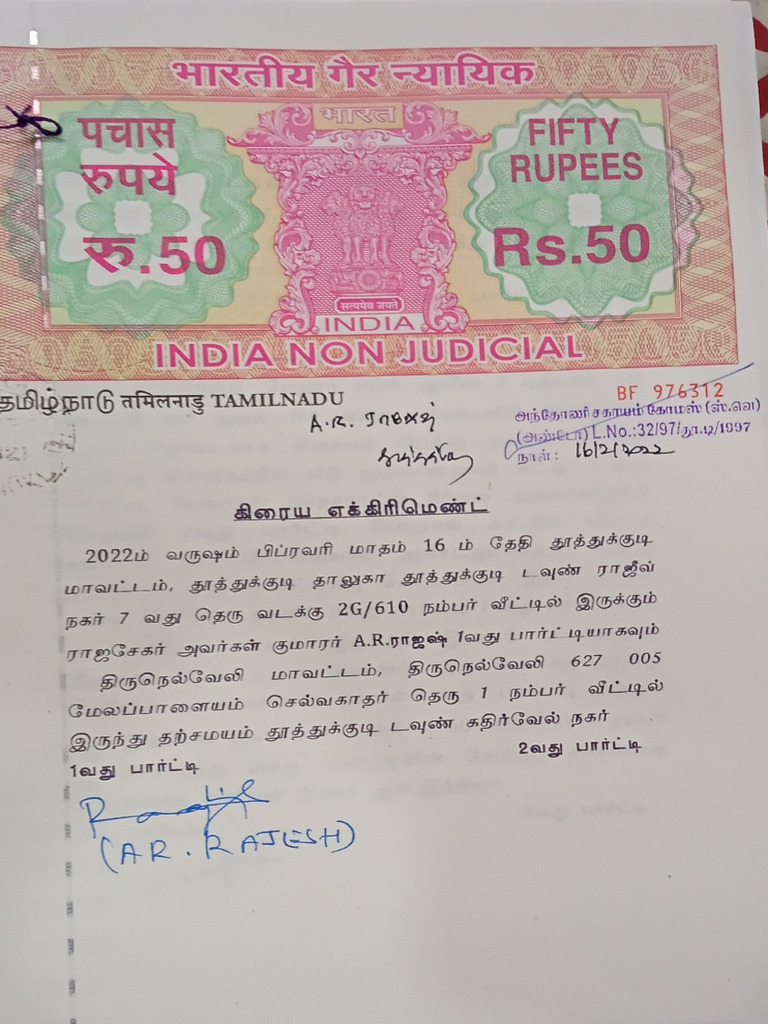 भारतीय गैर न्यायिक
भारत
पचास
रुपये
रु.50
FIFTY
RUPEES
Rs.50
सत्यमेव जयते
INDIA
INDIA NON JUDICIAL
தமிழ்நாடு तमिलनाडु TAMILNADU
BF 976312
A.R. ராஜேஷ்
அந்தோணி சகாயம் கோமஸ் (ஸ்.வெ)
(அண்டோ) L.No.:32/97/தூ.டி/1997
நாள்: 16/2/2022
தூத்துக்குடி
கிரைய எக்கிரிமெண்ட்
2022ம் வருஷம் பிப்ரவரி மாதம் 16 ம் தேதி தூத்துக்குடி
மாவட்டம், தூத்துக்குடி தாலுகா தூத்துக்குடி டவுண் ராஜீவ்
நகர் 7 வது தெரு வடக்கு 2G/610 நம்பர் வீட்டில் இருக்கும்
ராஜசேகர் அவர்கள் குமாரர் A.R.ராஜஷ் 1வது பார்ட்டியாகவும்
திருநெல்வேலி மாவட்டம், திருநெல்வேலி 627 005
மேலப்பாளையம் செல்வகாதர் தெரு 1 நம்பர் வீட்டில்
இருந்து தற்சமயம் தூத்துக்குடி டவுண் கதிர்வேல் நகர்
1வது பார்ட்டி 2வது பார்ட்டி
(A R. RAJESH)